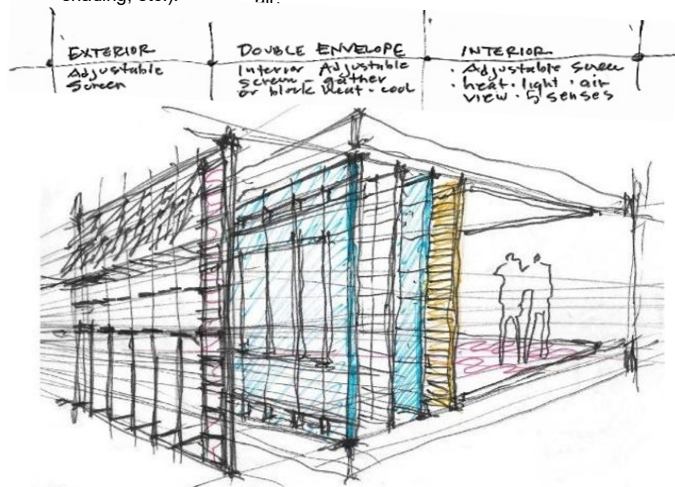 shading, etc.).
air.
EXTERIOR
Adjustable
Screen
DOUBLE ENVELOPE
Interior Adjustable
screen - gather
or block heat - cool
INTERIOR
· Adjustable Screen
· heat · light · air
view · 5 senses